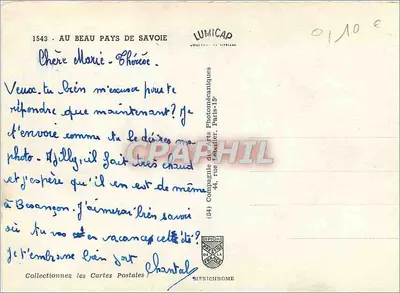 1543 - AU BEAU PAYS DE SAVOIE
LUMICAP
0,10 €
Chère Marie-Thérèse
Veux-tu bien m'excuser pour te
répondre que maintenant? Je
t'envoie comme tu le désires ma
photo. A Jilly, il fait très chaud
et j'espère qu'il en est de même
à Besançon. J'aimerai bien savoir
où tu vas en vacances cet été?
Je t'embrasse bien fort
Chantal
CPARAPHIL
(04) Compagnie des Arts Photomécaniques
44, rue Letellier, Paris-15e
Collectionnez les Cartes Postales
MEXICHROME